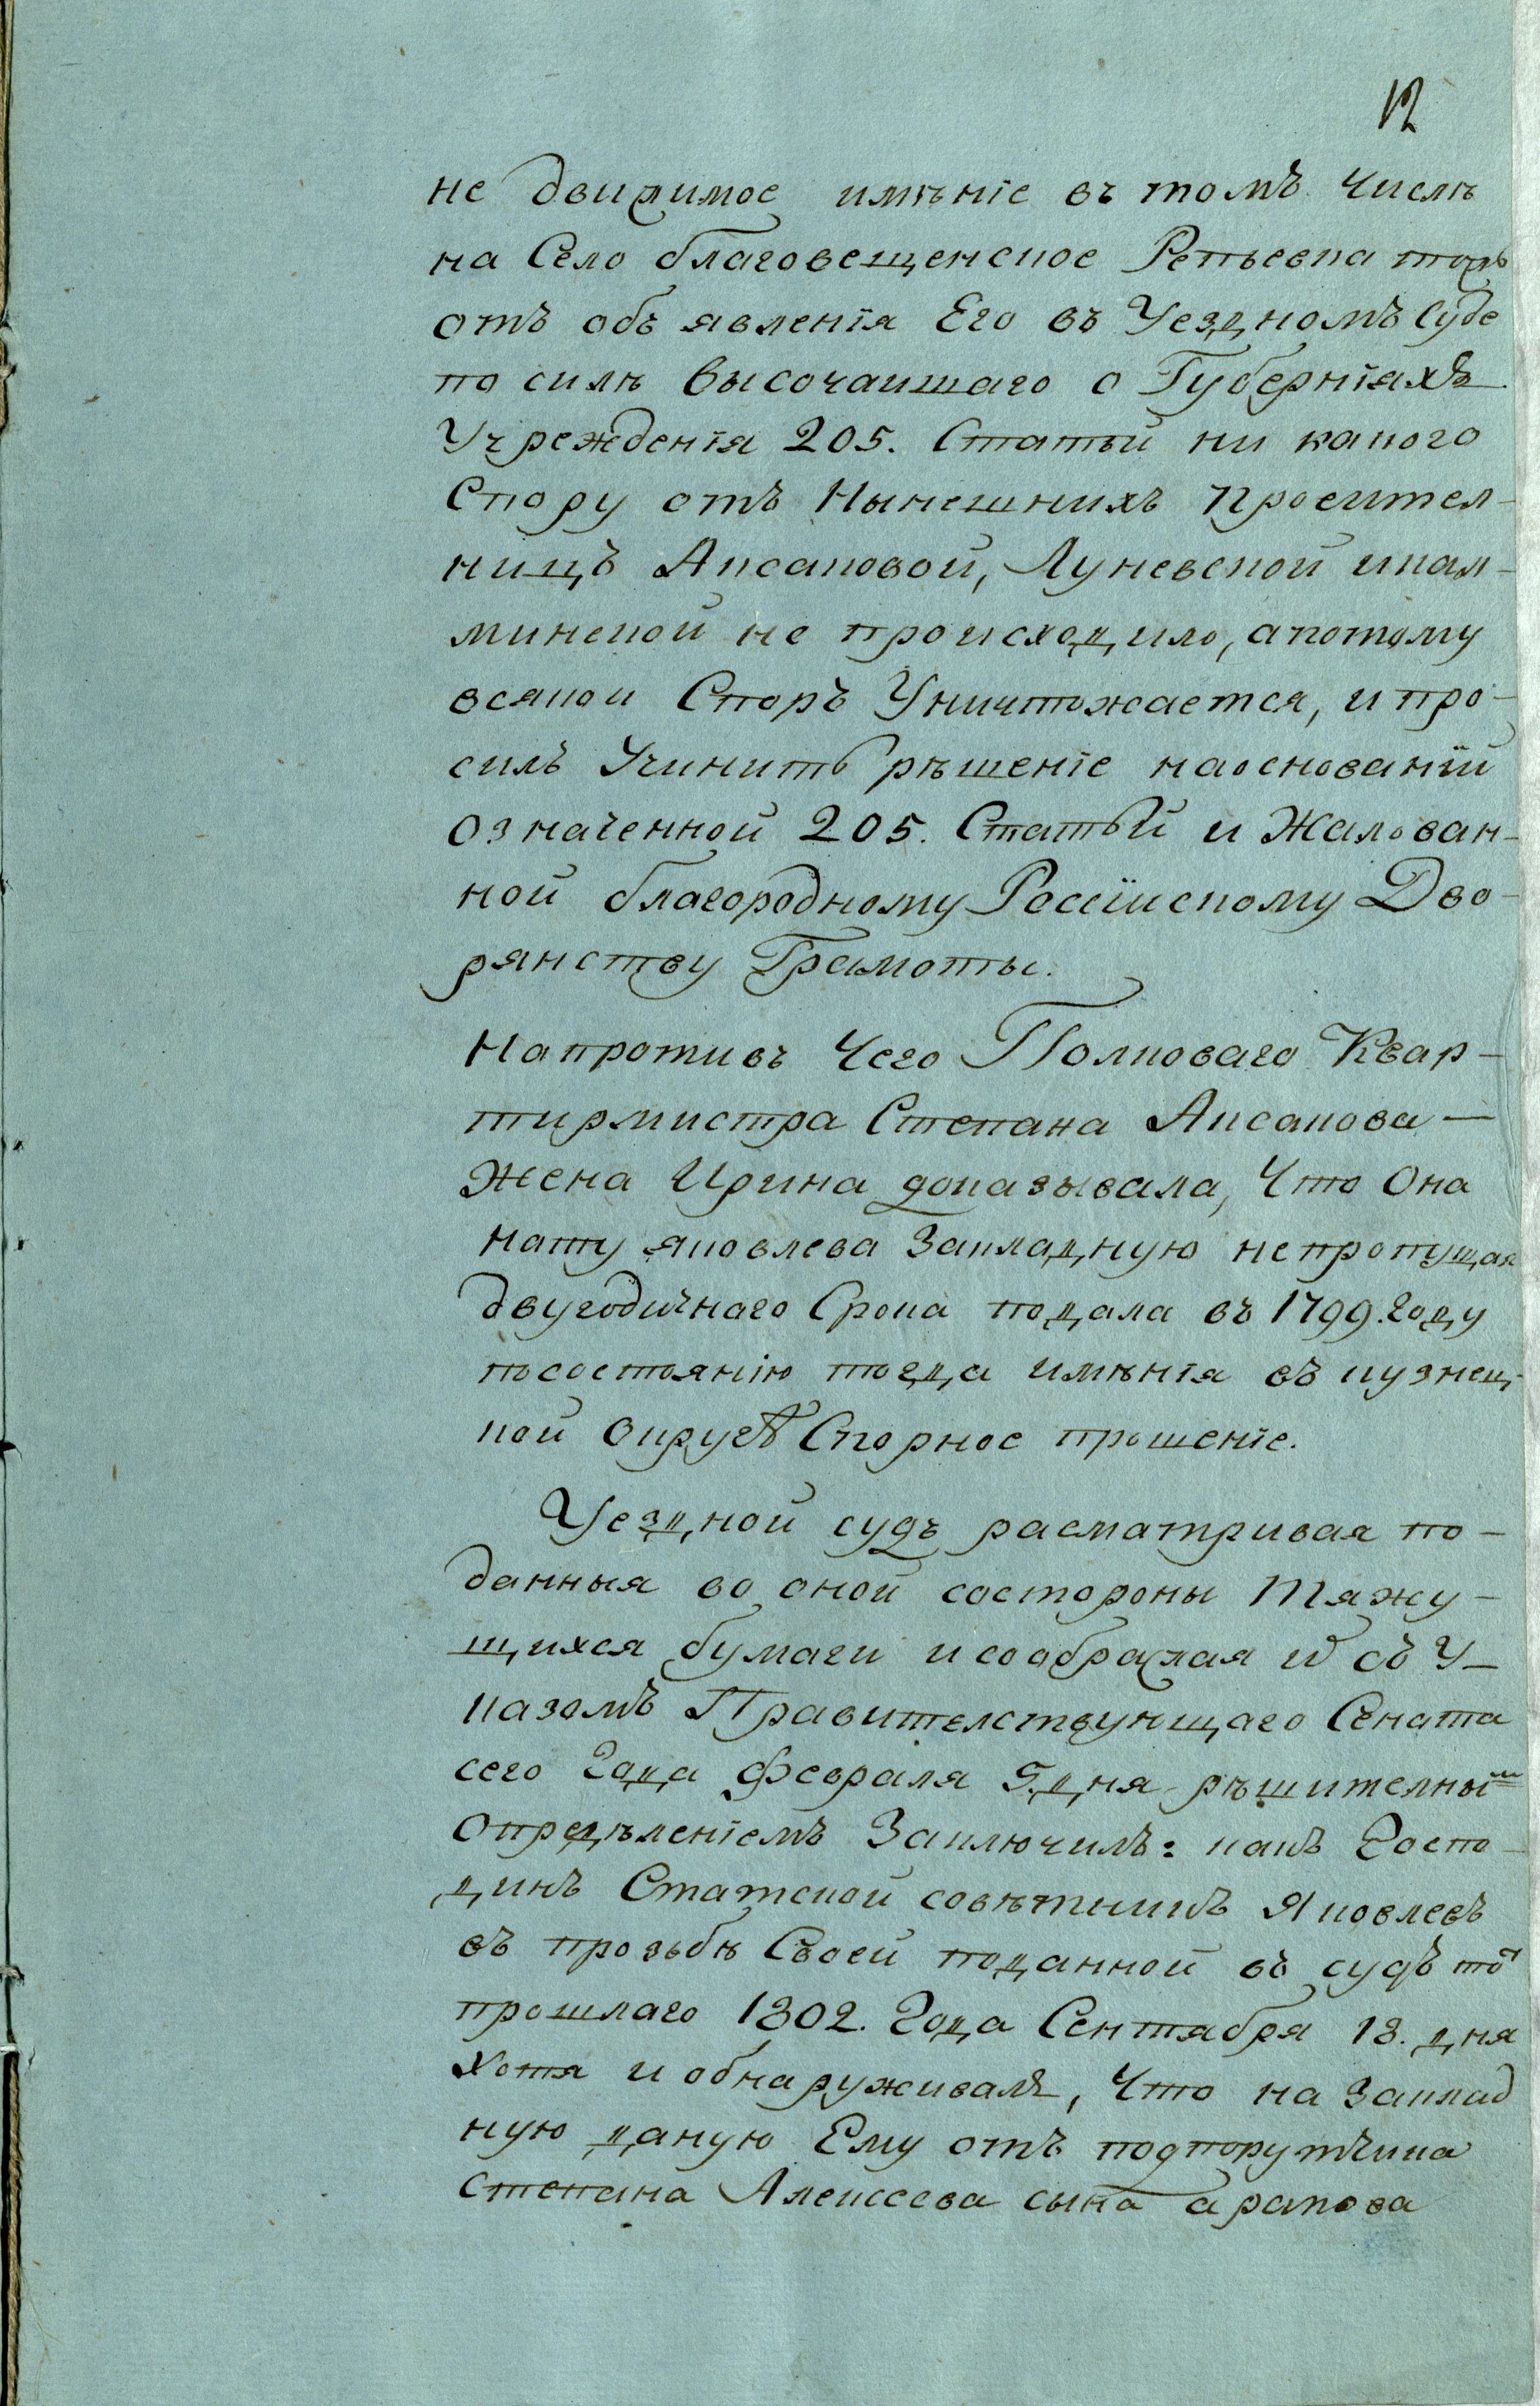 12
не движимое имѣніе въ томъ числѣ
на Село благовещенское Репьевка тожъ
отъ объ явленія Его въ Уездномъ Суде
по силѣ высочаишаго о Губерніяхъ
Учреждения 205. Статьи ни какого
Спору отъ Нынешнихъ просител-
ницъ Аксаковой, Луневской икал-
минской не происходило, апотому
всякои Споръ Уничтожается, и про-
силъ Учинить рѣшеніе наоснованіи
означенной 205. Статьи и Жалован-
ной благородному Росїискому Дво-
рянству Грамоты.
Напротивъ Чего Полковаго Квар-
тирмистра Степана Аксакова —
Жена Ирина доказывала, Что Она
нату яковлева Закладную непропущая
двугодичнаго Срока подала въ 1799. Году
посостоянію тогда имѣнія въ кузнец-
кой округѣ Спорное прошеніе.
Уездной судъ расматривая по-
данныя во оной состороны Тяжу-
щихся бумаги исоображая их съ У-
казомъ Правителствующаго Сената
сего Года Февраля 5. дня рѣшителным
Опредѣленіемъ Заключилъ: какъ Госпо-
динъ Статской совѣтникъ Яковлевъ
въ прозьбѣ Своей поданной въ судъ тот
прошлаго 1802. Года Сентября 18. дня
хотя и обнаруживалъ, Что на Заклад
ную даную Ему отъ подпорутчика
Степана Алексеева сына арапова